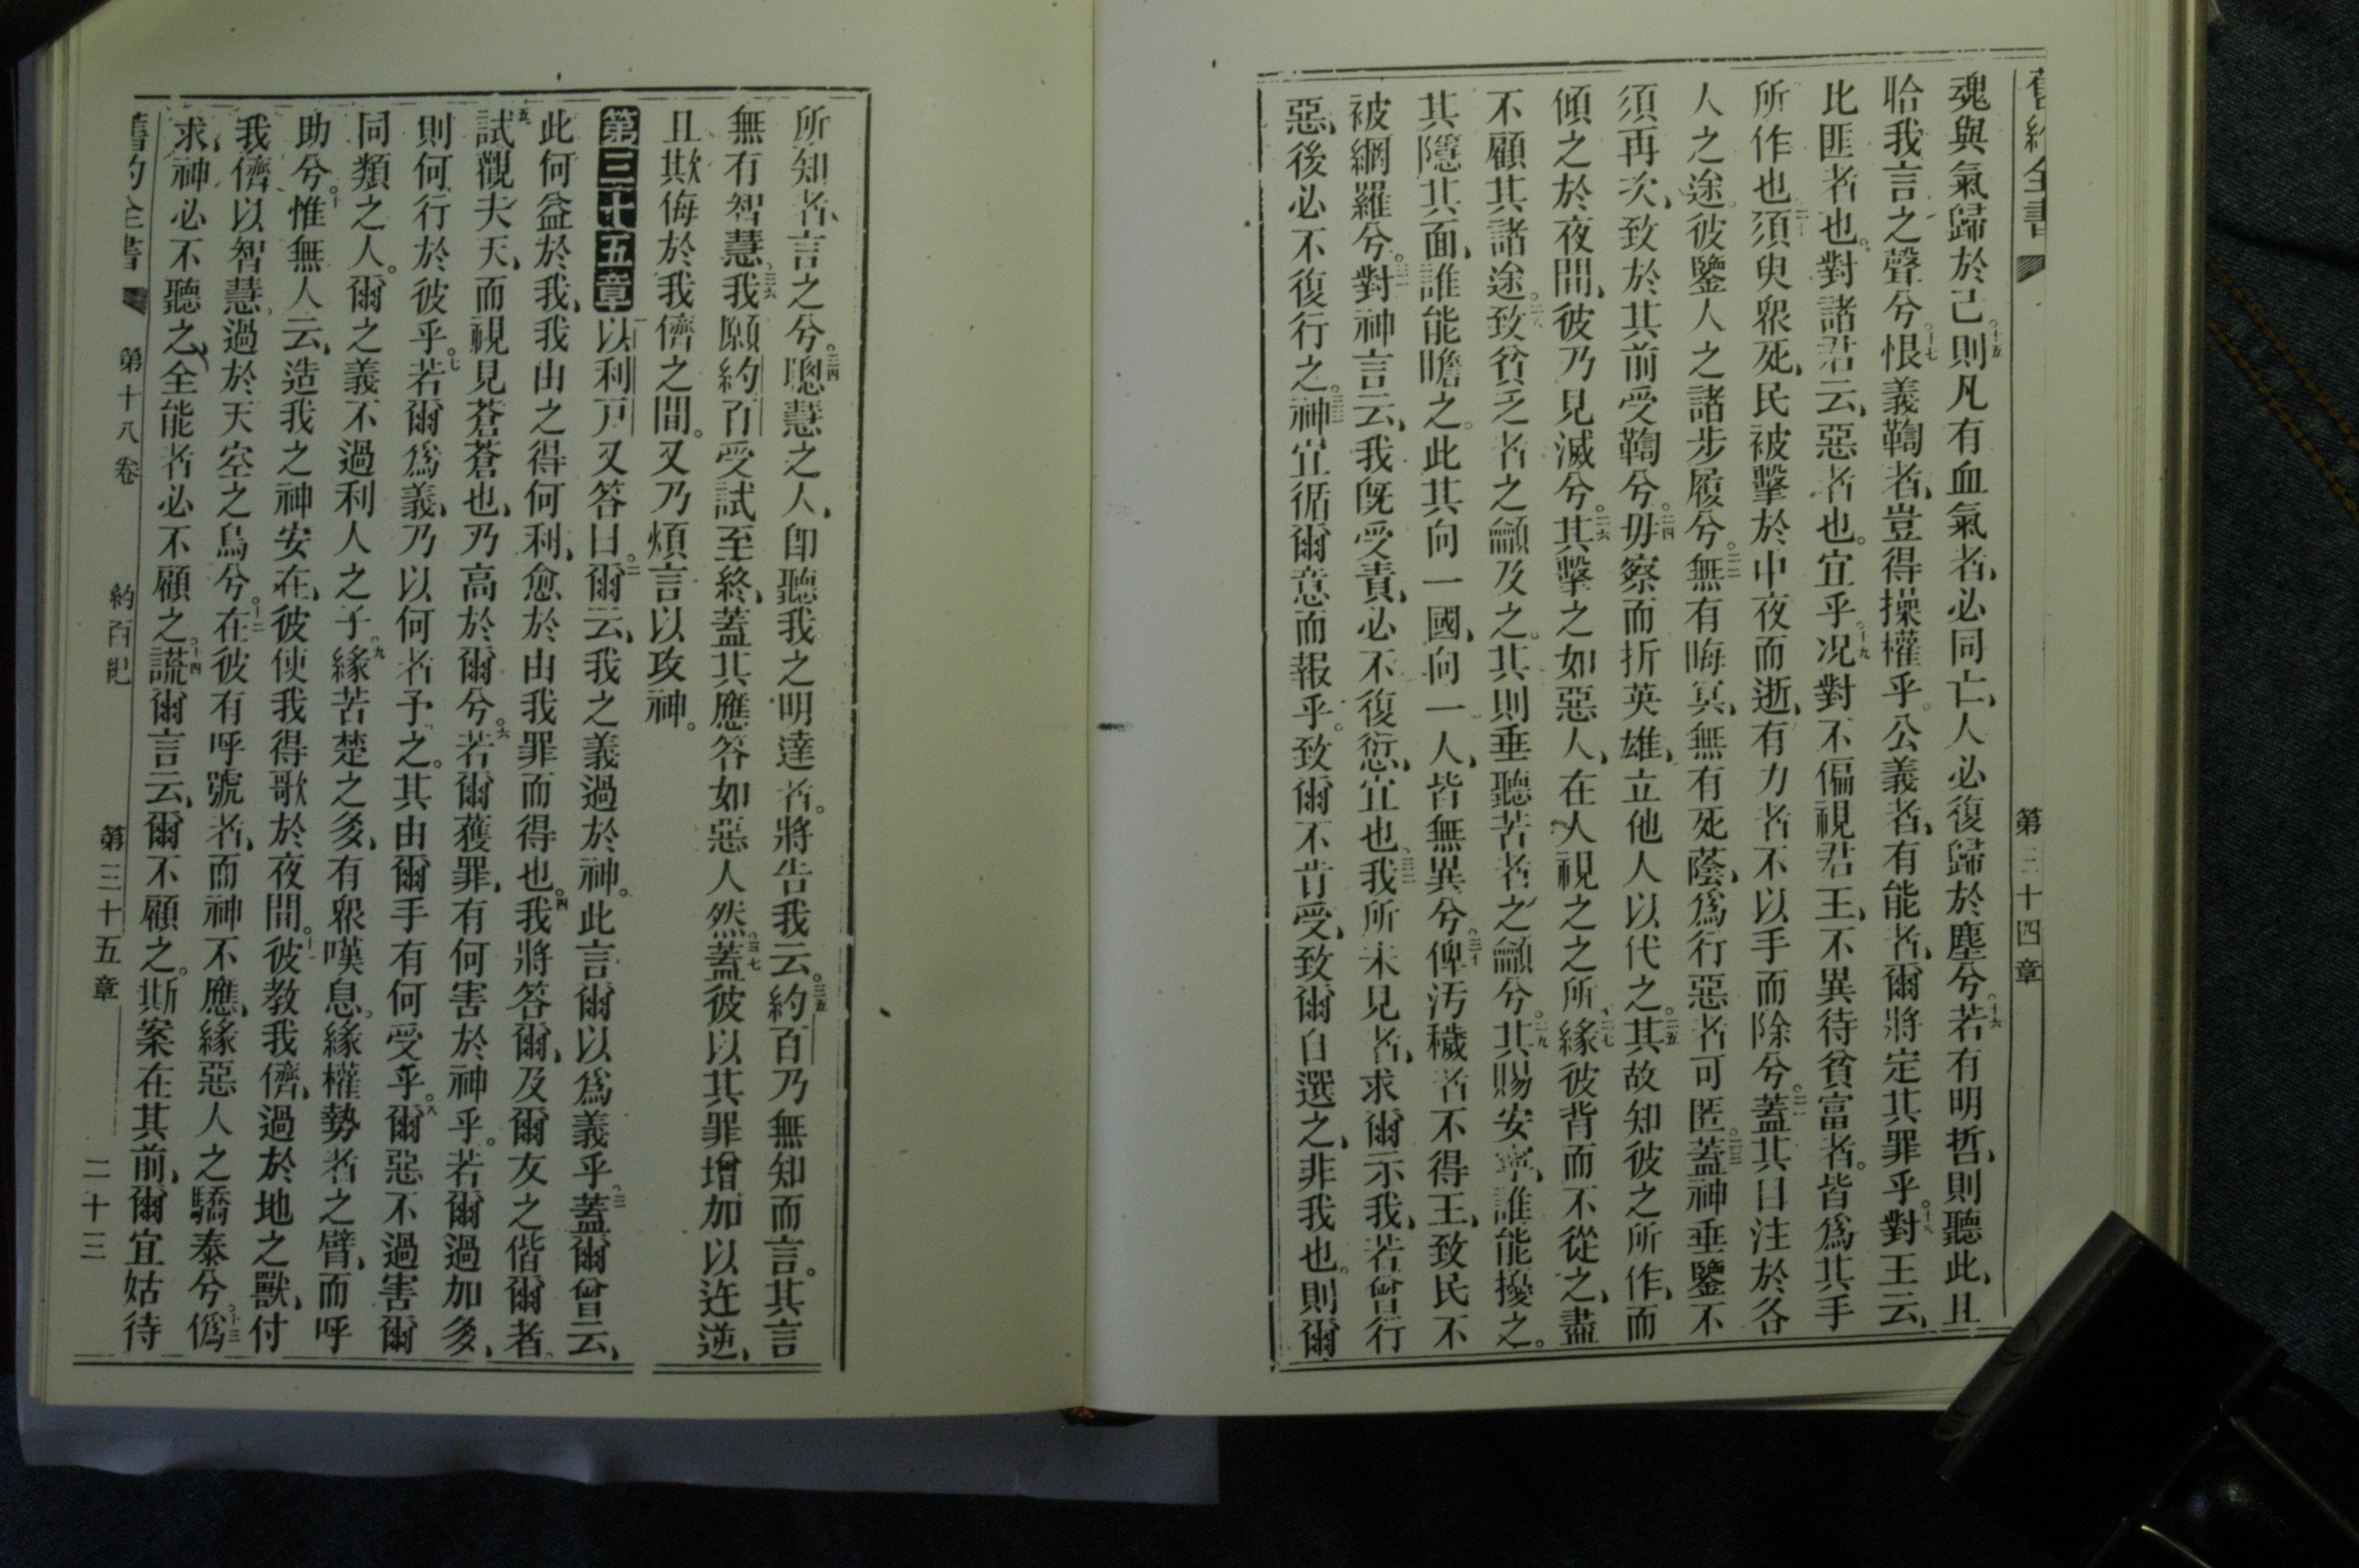 舊約全書 第三十四章
魂與氣歸於己。十五則凡有血氣者、必同亡、人必復歸於塵兮。十六若有明哲、則聽此、且
聆我言之聲兮。十七恨義鞫者、豈得操權乎。公義者、有能者、爾將定其罪乎。十八對王云、
此匪者也。對諸君云、惡者也。宜乎。十九况對不偏視君王、不異待貧富者。皆爲其手
所作也。二十須臾衆死、民被擊於中夜而逝、有力者不以手而除兮。二一蓋其目注於各
人之途。彼鑒人之諸步履兮。二二無有晦冥、無有死蔭、爲行惡者可匿。二三蓋神垂鑒不
須再次、致於其前受鞫兮。二四毋察而折英雄、立他人以代之。二五其故知彼之所作、而
傾之於夜間、彼乃見滅兮。二六其擊之如惡人、在人視之之所、二七緣彼背而不從之、盡
不顧其諸途。二八致貧乏者之籲及之。其則垂聽苦者之籲兮。二九其賜安寧、誰能擾之。
其隱其面、誰能瞻之。此其向一國、向一人、皆無異兮。三十俾汚穢者不得王、致民不
被網羅兮。三一對神言云、我旣受責、必不復愆、宜也、三二我所未見者、求爾示我、若曾行
惡、後必不復行之。三三神宜循爾意而報乎。致爾不肯受、致爾自選之、非我也。則爾
所知者、言之兮。三四聰慧之人、卽聽我之明達者。將告我云。三五約百乃無知而言。其言
無有智慧、三六我願約百受試至終、蓋其應答如惡人然。三七蓋彼以其罪增加以迕逆、
且欺侮於我儕之間。又乃煩言以攻神。
第三十五章 以利戶又答曰。二爾云、我之義過於神。此言爾以爲義乎。三蓋爾曾云、
此何益於我、我由之得何利、愈於由我罪而得也。四我將答爾、及爾友之偕爾者、
五試觀夫天、而視見蒼蒼也、乃高於爾兮。六若爾獲罪、有何害於神乎。若爾過加多、
則何行於彼乎。七若爾爲義、乃以何者予之。其由爾手有何受乎。八爾惡不過害爾
同類之人。爾之義不過利人之子。九緣苦楚之多、有衆嘆息。緣權勢者之臂、而呼
助兮。十惟無人云、造我之神安在、彼使我得歌於夜間。十一彼教我儕、過於地之獸、付
我儕以智慧、過於天空之鳥兮。十二在彼有呼號者、而神不應、緣惡人之驕泰兮。十三僞
求、神必不聽之、全能者必不顧之。十四謊爾言云、爾不顧之。斯案在其前、爾宜姑待
舊約全書 第十八卷 約百紀 第三十五章 二十三